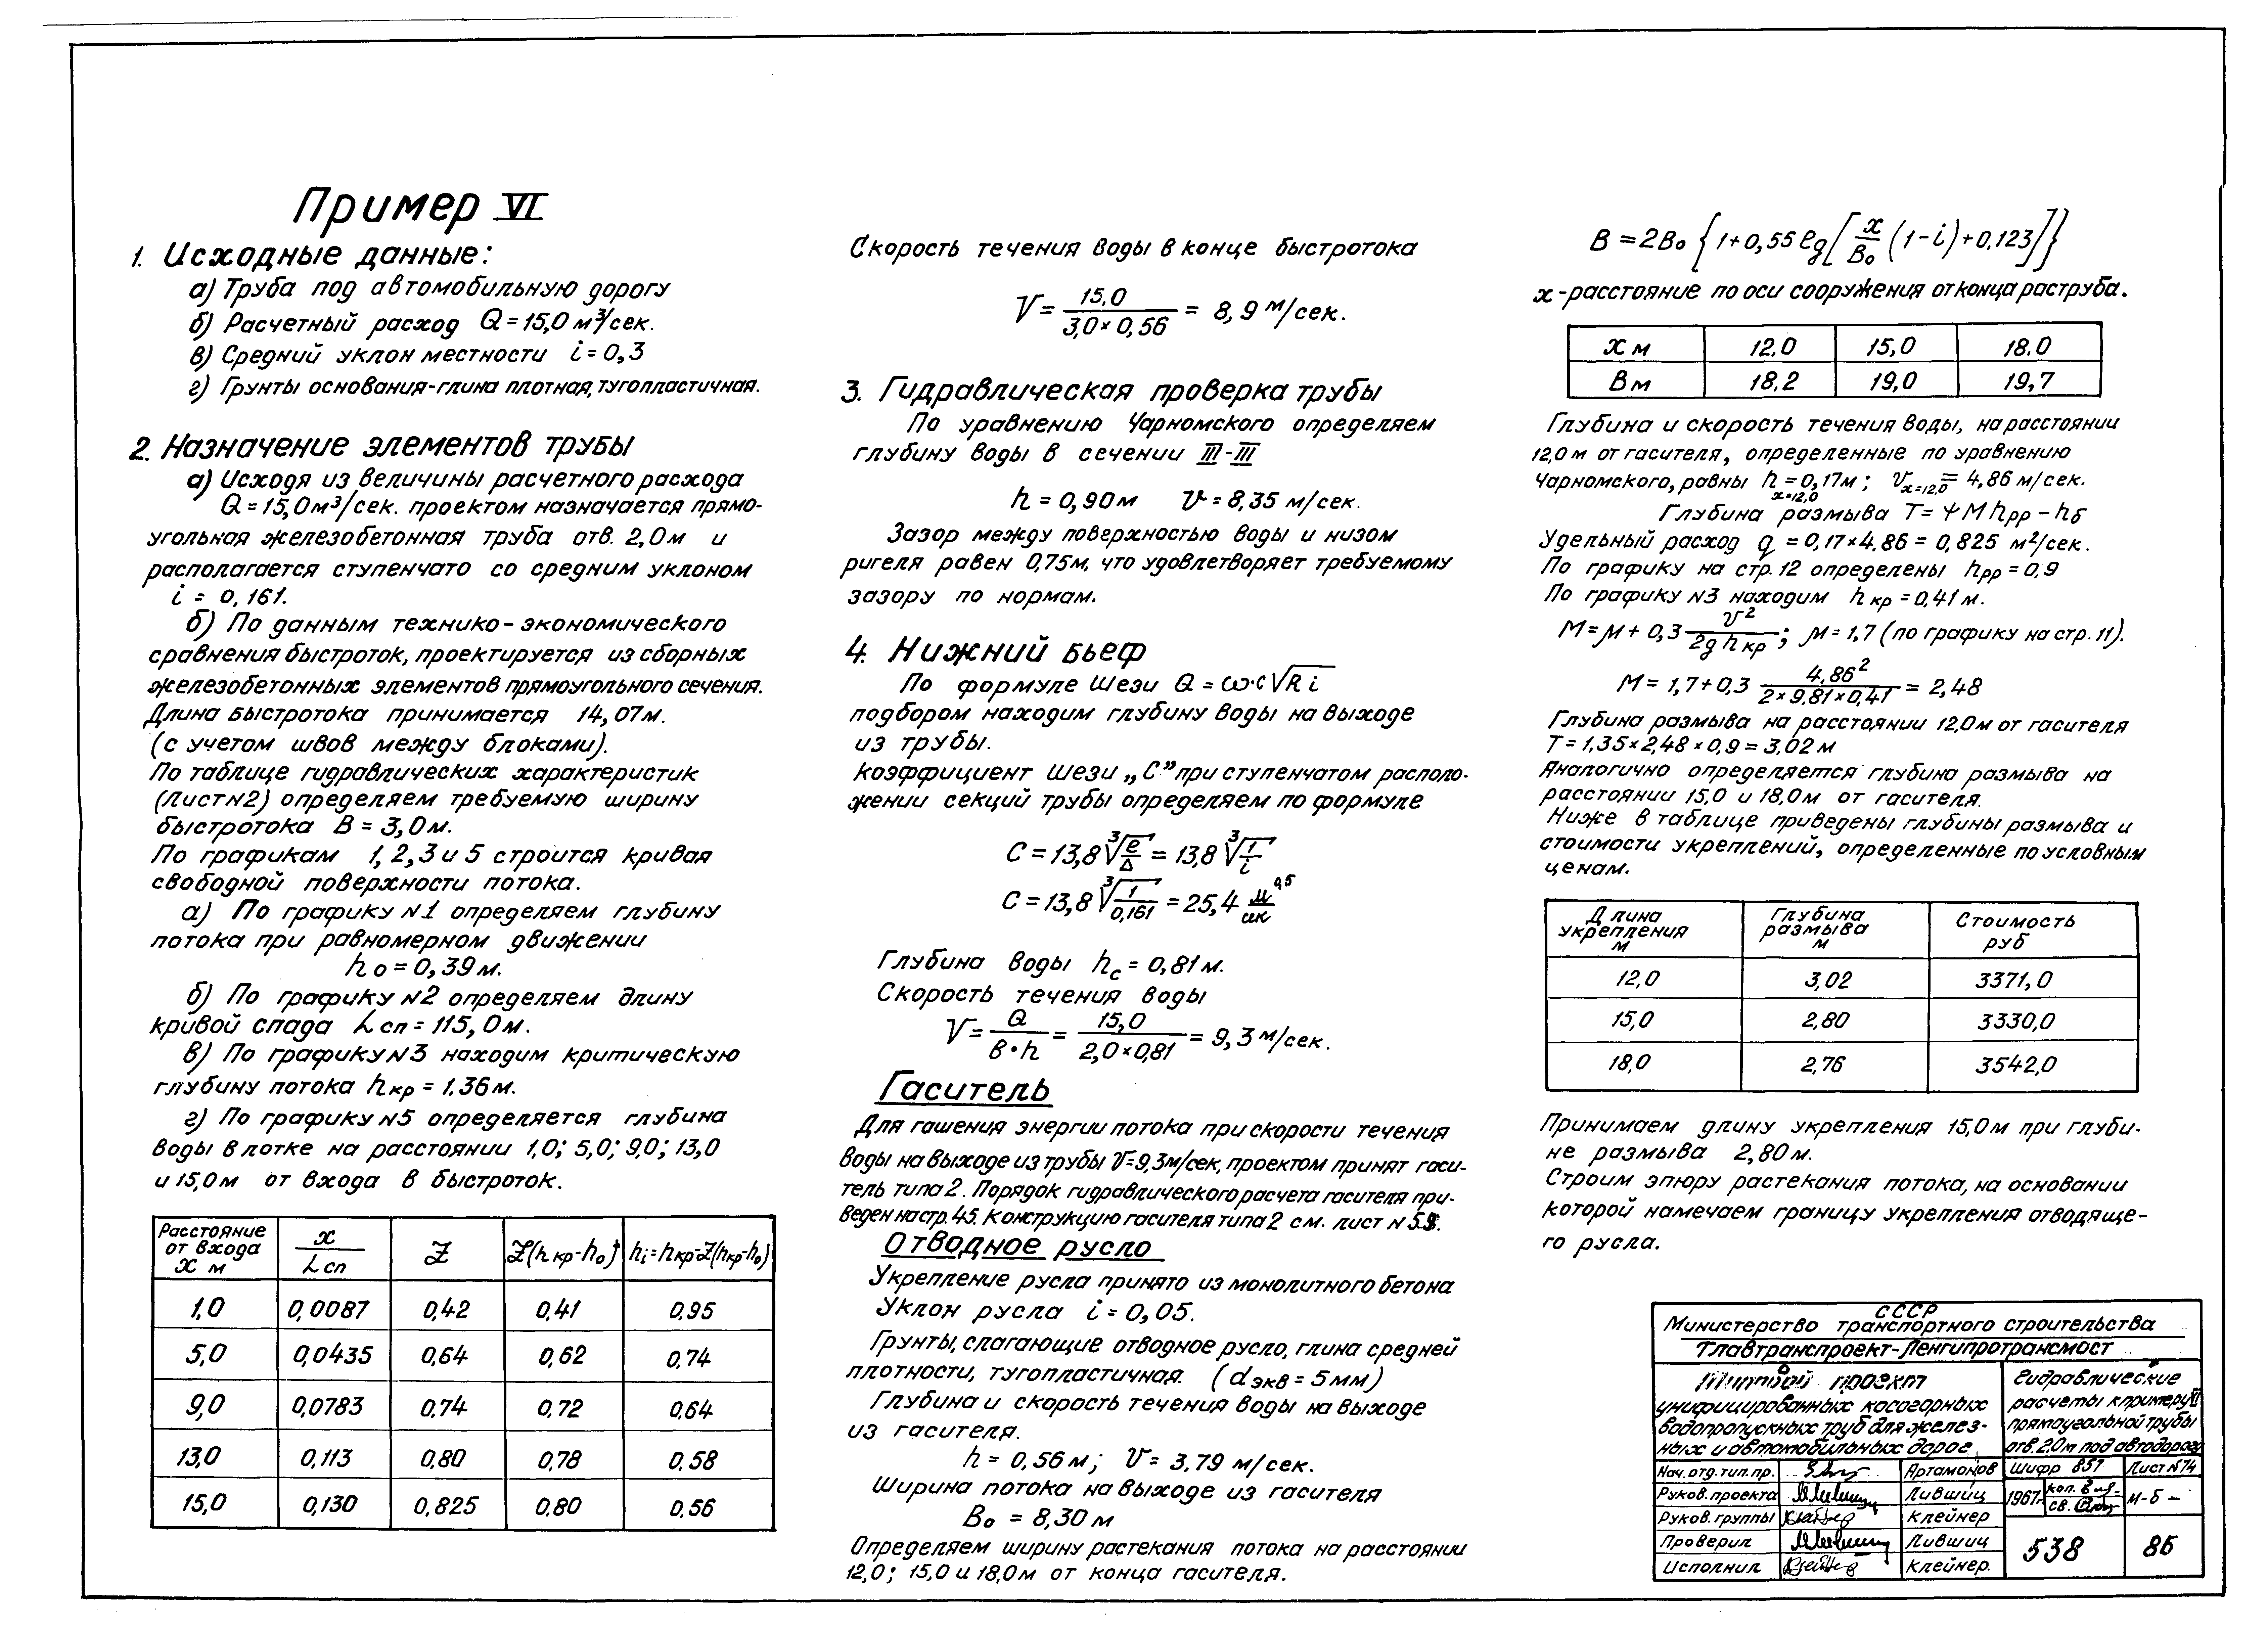 Пример VI
1. Исходные данные:
а) Труба под автомобильную дорогу
б) Расчетный расход Q = 15,0 м³/сек.
в) Средний уклон местности i = 0,3
г) Грунты основания-глина плотная, тугопластичная.
2. Назначение элементов трубы
а) Исходя из величины расчетного расхода
Q = 15,0 м³/сек. проектом назначается прямо-
угольная железобетонная труба отв. 2,0м и
располагается ступенчато со средним уклоном
i = 0,161.
б) По данным технико-экономического
сравнения быстроток, проектируется из сборных
железобетонных элементов прямоугольного сечения.
Длина быстротока принимается 14,07м.
(с учетом швов между блоками).
По таблице гидравлических характеристик
(Лист N2) определяем требуемую ширину
быстротока В = 3,0м.
По графикам 1, 2, 3 и 5 строится кривая
свободной поверхности потока.
а) По графику N1 определяем глубину
потока при равномерном движении
hо = 0,39м.
б) По графику N2 определяем длину
кривой спада Lсп = 115,0м.
в) По графику N3 находим критическую
глубину потока hкр = 1,36м.
г) По графику N5 определяется глубина
воды в лотке на расстоянии 1,0; 5,0; 9,0; 13,0
и 15,0м от входа в быстроток.
Расстояние от входа X м | x/Lсп | Z | Z(hкр-h₀) | hi = hкр-Z(hкр-h₀)
1,0 | 0,0087 | 0,42 | 0,41 | 0,95
5,0 | 0,0435 | 0,64 | 0,62 | 0,74
9,0 | 0,0783 | 0,74 | 0,72 | 0,64
13,0 | 0,113 | 0,80 | 0,78 | 0,58
15,0 | 0,130 | 0,825 | 0,80 | 0,56
Скорость течения воды в конце быстротока
V = 15,0 / 3,0 × 0,56 = 8,9 м/сек.
3. Гидравлическая проверка трубы
По уравнению Чарномского определяем
глубину воды в сечении III-III
h = 0,90м V = 8,35 м/сек.
Зазор между поверхностью воды и низом
ригеля равен 0,75м, что удовлетворяет требуемому
зазору по нормам.
4. Нижний бьеф
По формуле Шези Q = ω·c√Ri
подбором находим глубину воды на выходе
из трубы.
коэффициент Шези „С” при ступенчатом располо-
жении секций трубы определяем по формуле
C = 13,8 ∛(e/Δ) = 13,8 ∛(1/i)
C = 13,8 ∛(1/0,161) = 25,4 м^0,5/сек
Глубина воды hс = 0,81м.
Скорость течения воды
V = Q / в·h = 15,0 / 2,0×0,81 = 9,3 м/сек.
Гаситель
Для гашения энергии потока при скорости течения
воды на выходе из трубы V=9,3м/сек, проектом принят гаси-
тель типа 2. Порядок гидравлического расчета гасителя при-
веден на стр. 45. Конструкцию гасителя типа 2 см. лист N
Отводное русло
Укрепление русла принято из монолитного бетона
Уклон русла i = 0,05.
Грунты, слагающие отводное русло, глина средней
плотности, тугопластичная. (dэкв = 5мм)
Глубина и скорость течения воды на выходе
из гасителя.
h = 0,56м; V = 3,79 м/сек.
Ширина потока на выходе из гасителя
Во = 8,30м
Определяем ширину растекания потока на расстоянии
12,0; 15,0 и 18,0м от конца гасителя.
B = 2Bо {1+0,55 lg[x/Bо (1-i)+0,123]}
x - расстояние по оси сооружения от конца раструба.
X м | 12,0 | 15,0 | 18,0
В м | 18,2 | 19,0 | 19,7
Глубина и скорость течения воды, на расстоянии
12,0м от гасителя, определенные по уравнению
Чарномского, равны h x=12,0 = 0,17м; Vx=12,0 = 4,86 м/сек.
Глубина размыва T = ψ M hрр - hб
Удельный расход q = 0,17×4,86 = 0,825 м²/сек.
По графику на стр. 12 определены hрр = 0,9
По графику N3 находим hкр = 0,41м.
M = μ + 0,3 V²/2g hкр; μ = 1,7 (по графику на стр. 11).
M = 1,7 + 0,3 4,86² / 2×9,81×0,41 = 2,48
Глубина размыва на расстоянии 12,0м от гасителя
T = 1,35×2,48×0,9 = 3,02м
Аналогично определяется глубина размыва на
расстоянии 15,0 и 18,0м от гасителя.
Ниже в таблице приведены глубины размыва и
стоимости укреплений, определенные по условным
ценам.
Длина укрепления м | Глубина размыва м | Стоимость руб
12,0 | 3,02 | 3371,0
15,0 | 2,80 | 3330,0
18,0 | 2,76 | 3542,0
Принимаем длину укрепления 15,0м при глуби-
не размыва 2,80м.
Строим эпюру растекания потока, на основании
которой намечаем границу укрепления отводяще-
го русла.
СССР
Министерство транспортного строительства
Главтранспроект-Ленгипротрансмост
Типовой проект
унифицированных косогорных
водопропускных труб для желез-
ных и автомобильных дорог
Гидравлические
расчеты к примеру VI
прямоугольной трубы
отв. 2,0м под автодорогу
Нач. отд. тип. пр. | Артамонов | Шифр 857 | Лист N74
Руков. проекта | Лившиц | 1967г. | коп. | св. | М-б -
Руков. группы | Клейнер
Проверил | Лившиц | 538 | 86
Исполнил | Клейнер.